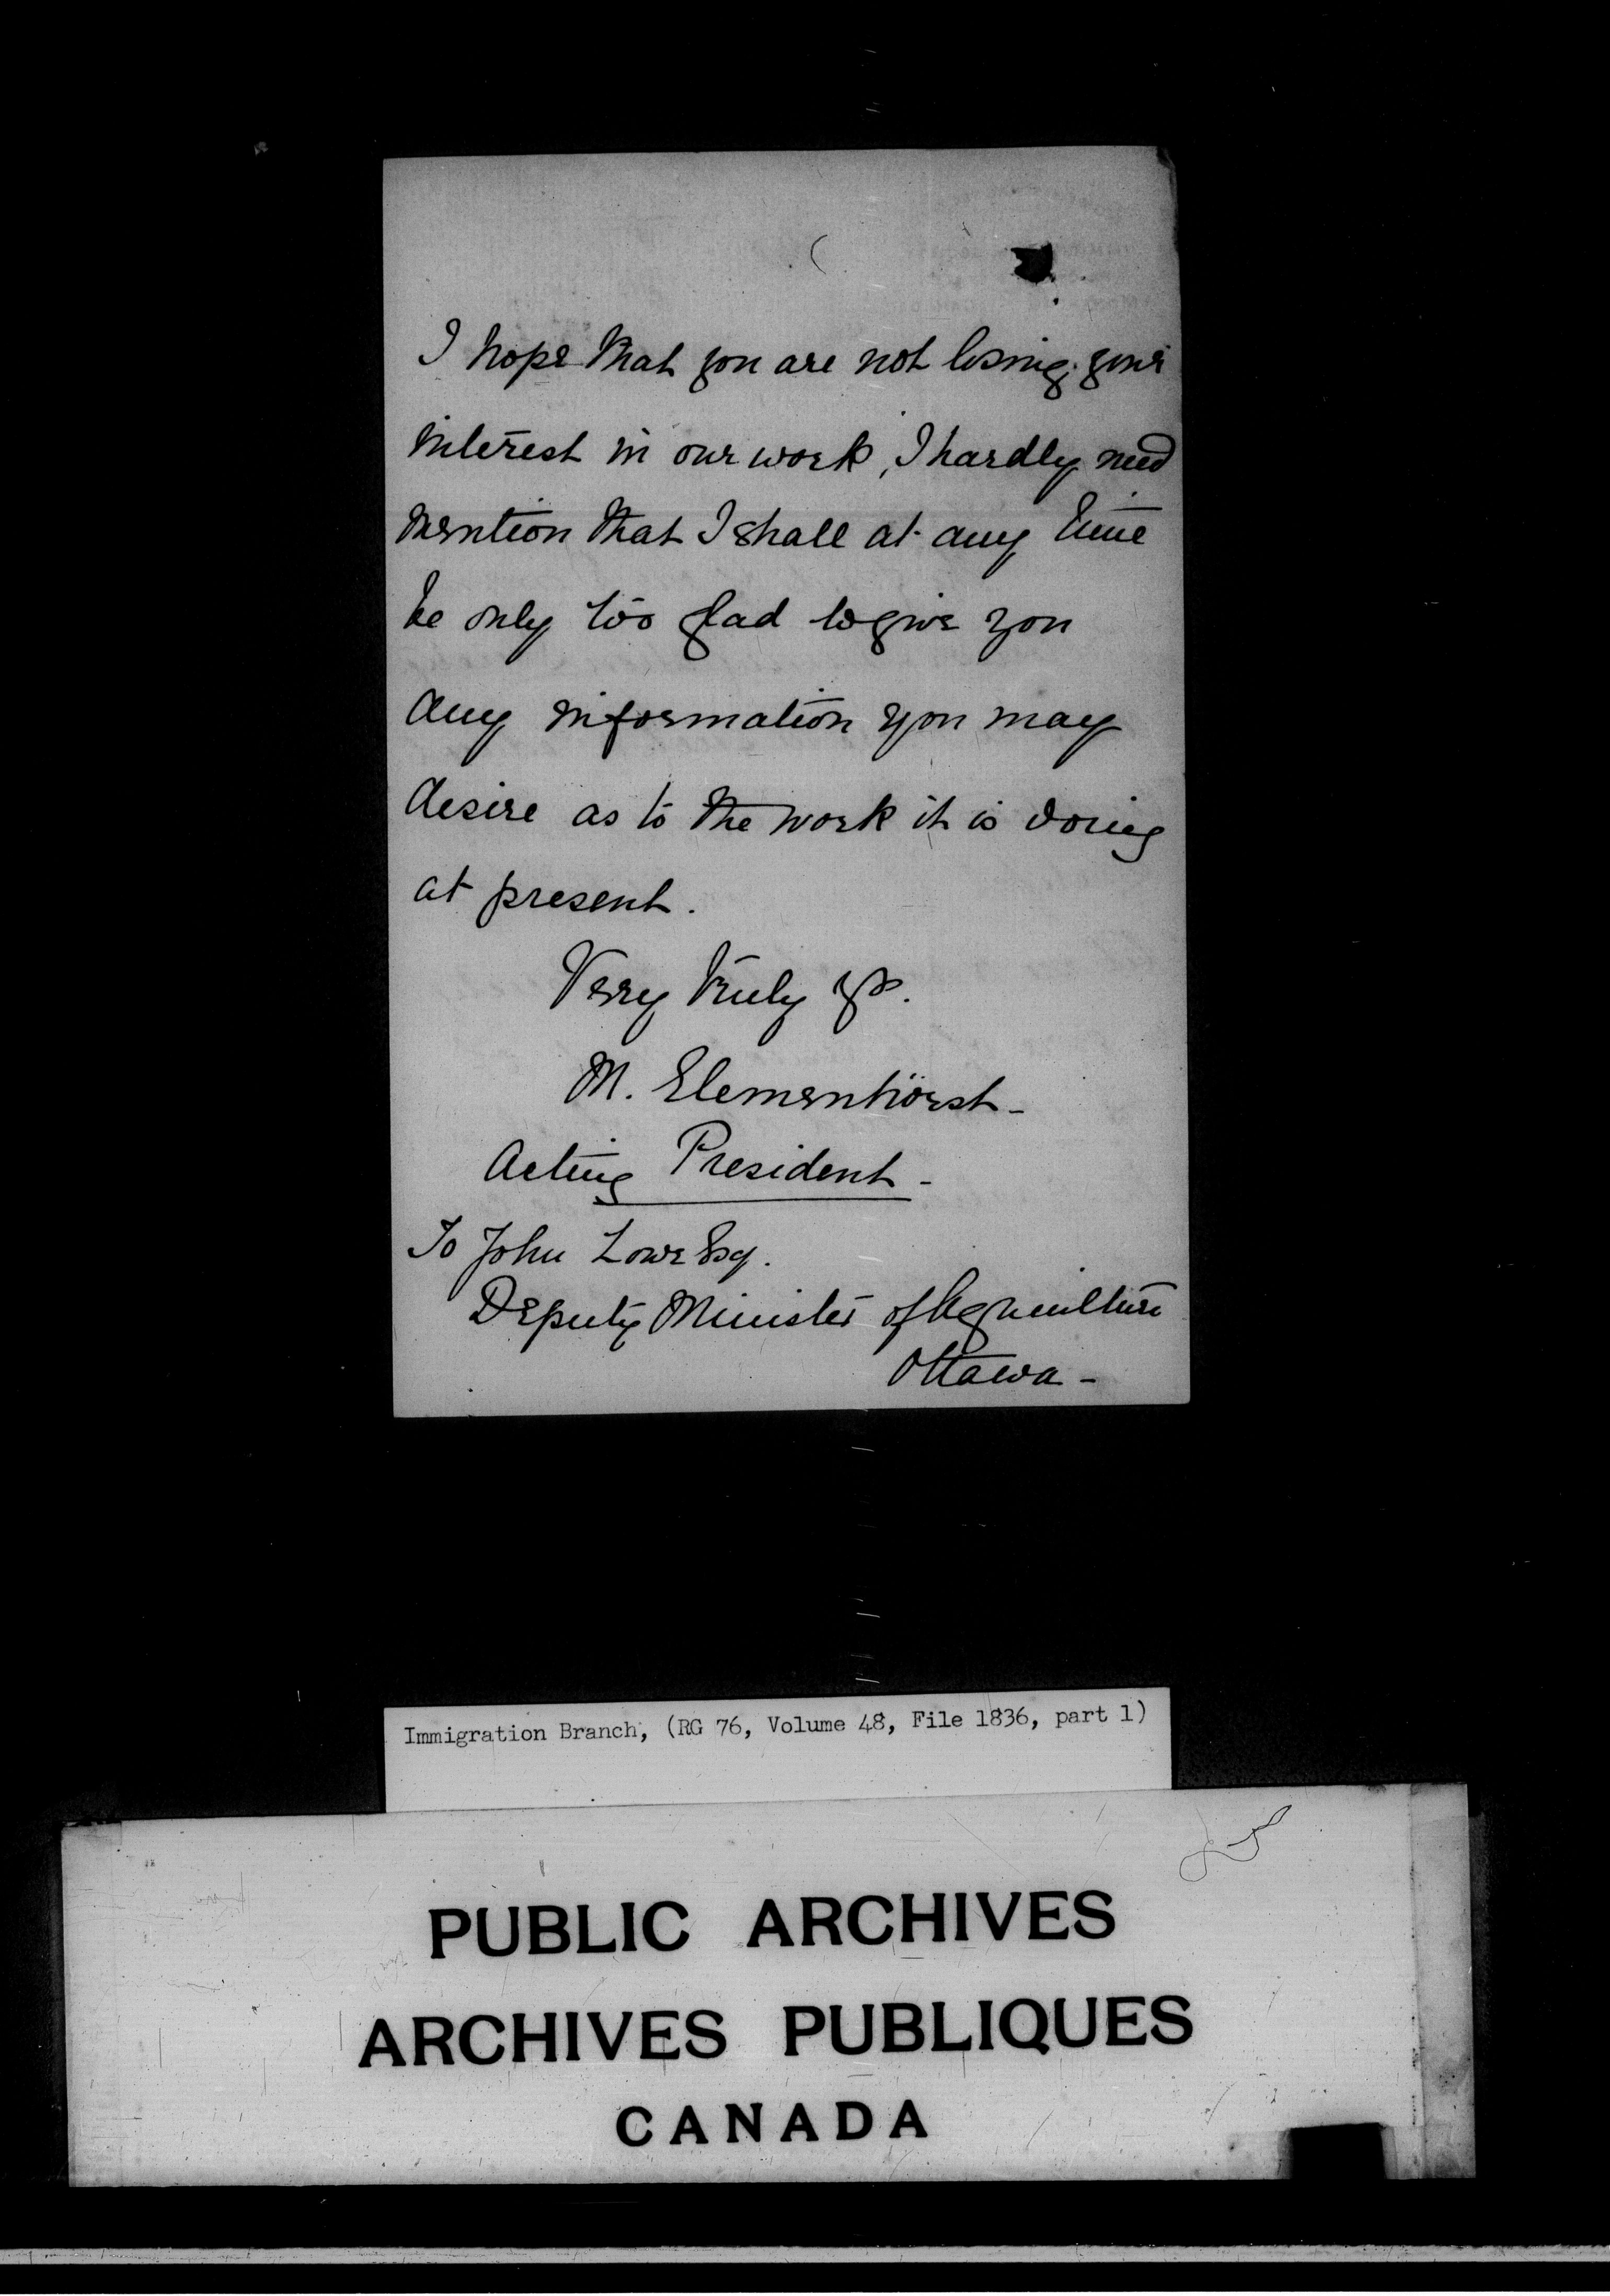 I hope that you are not losing your
interest in our work, I hardly need
mention that I shall at any time
be only too glad to give you
any information you may
desire as to the work it is doing
at present.
Very truly yrs.
M. Elemenhorst -
Acting President -
To John Lowe Esq.
Deputy Minister of Agriculture
Ottawa -
Immigration Branch, (RG 76, Volume 48, File 1836, part 1)
PUBLIC ARCHIVES
ARCHIVES PUBLIQUES
CANADA